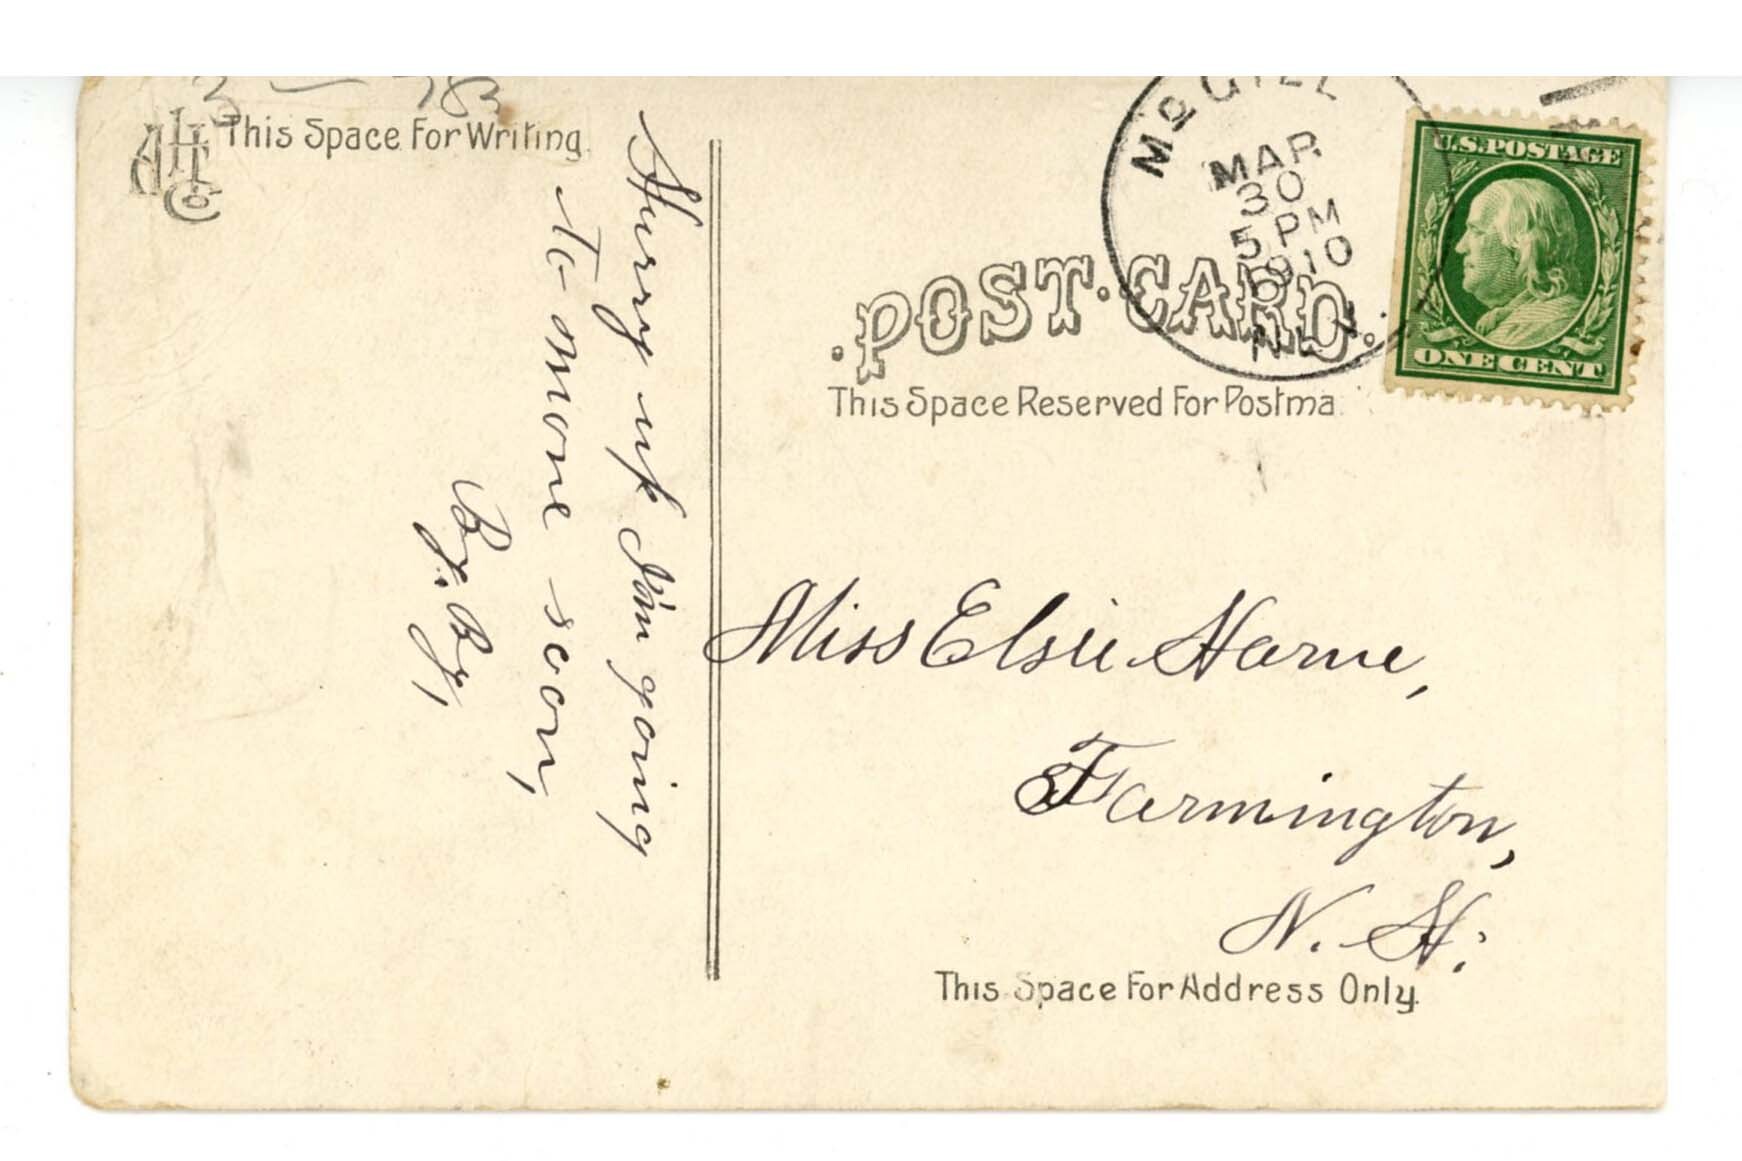 3 — 78
AHT Co
This Space For Writing.
Hurry up I'm going
to move soon,
By. By,
McGILL
MAR
30
5 PM
1910
U.S. POSTAGE
ONE CENT
·POST·CARD.
This Space Reserved For Postma
Miss Elsie Harne,
Farmington,
N. H.
This Space For Address Only.